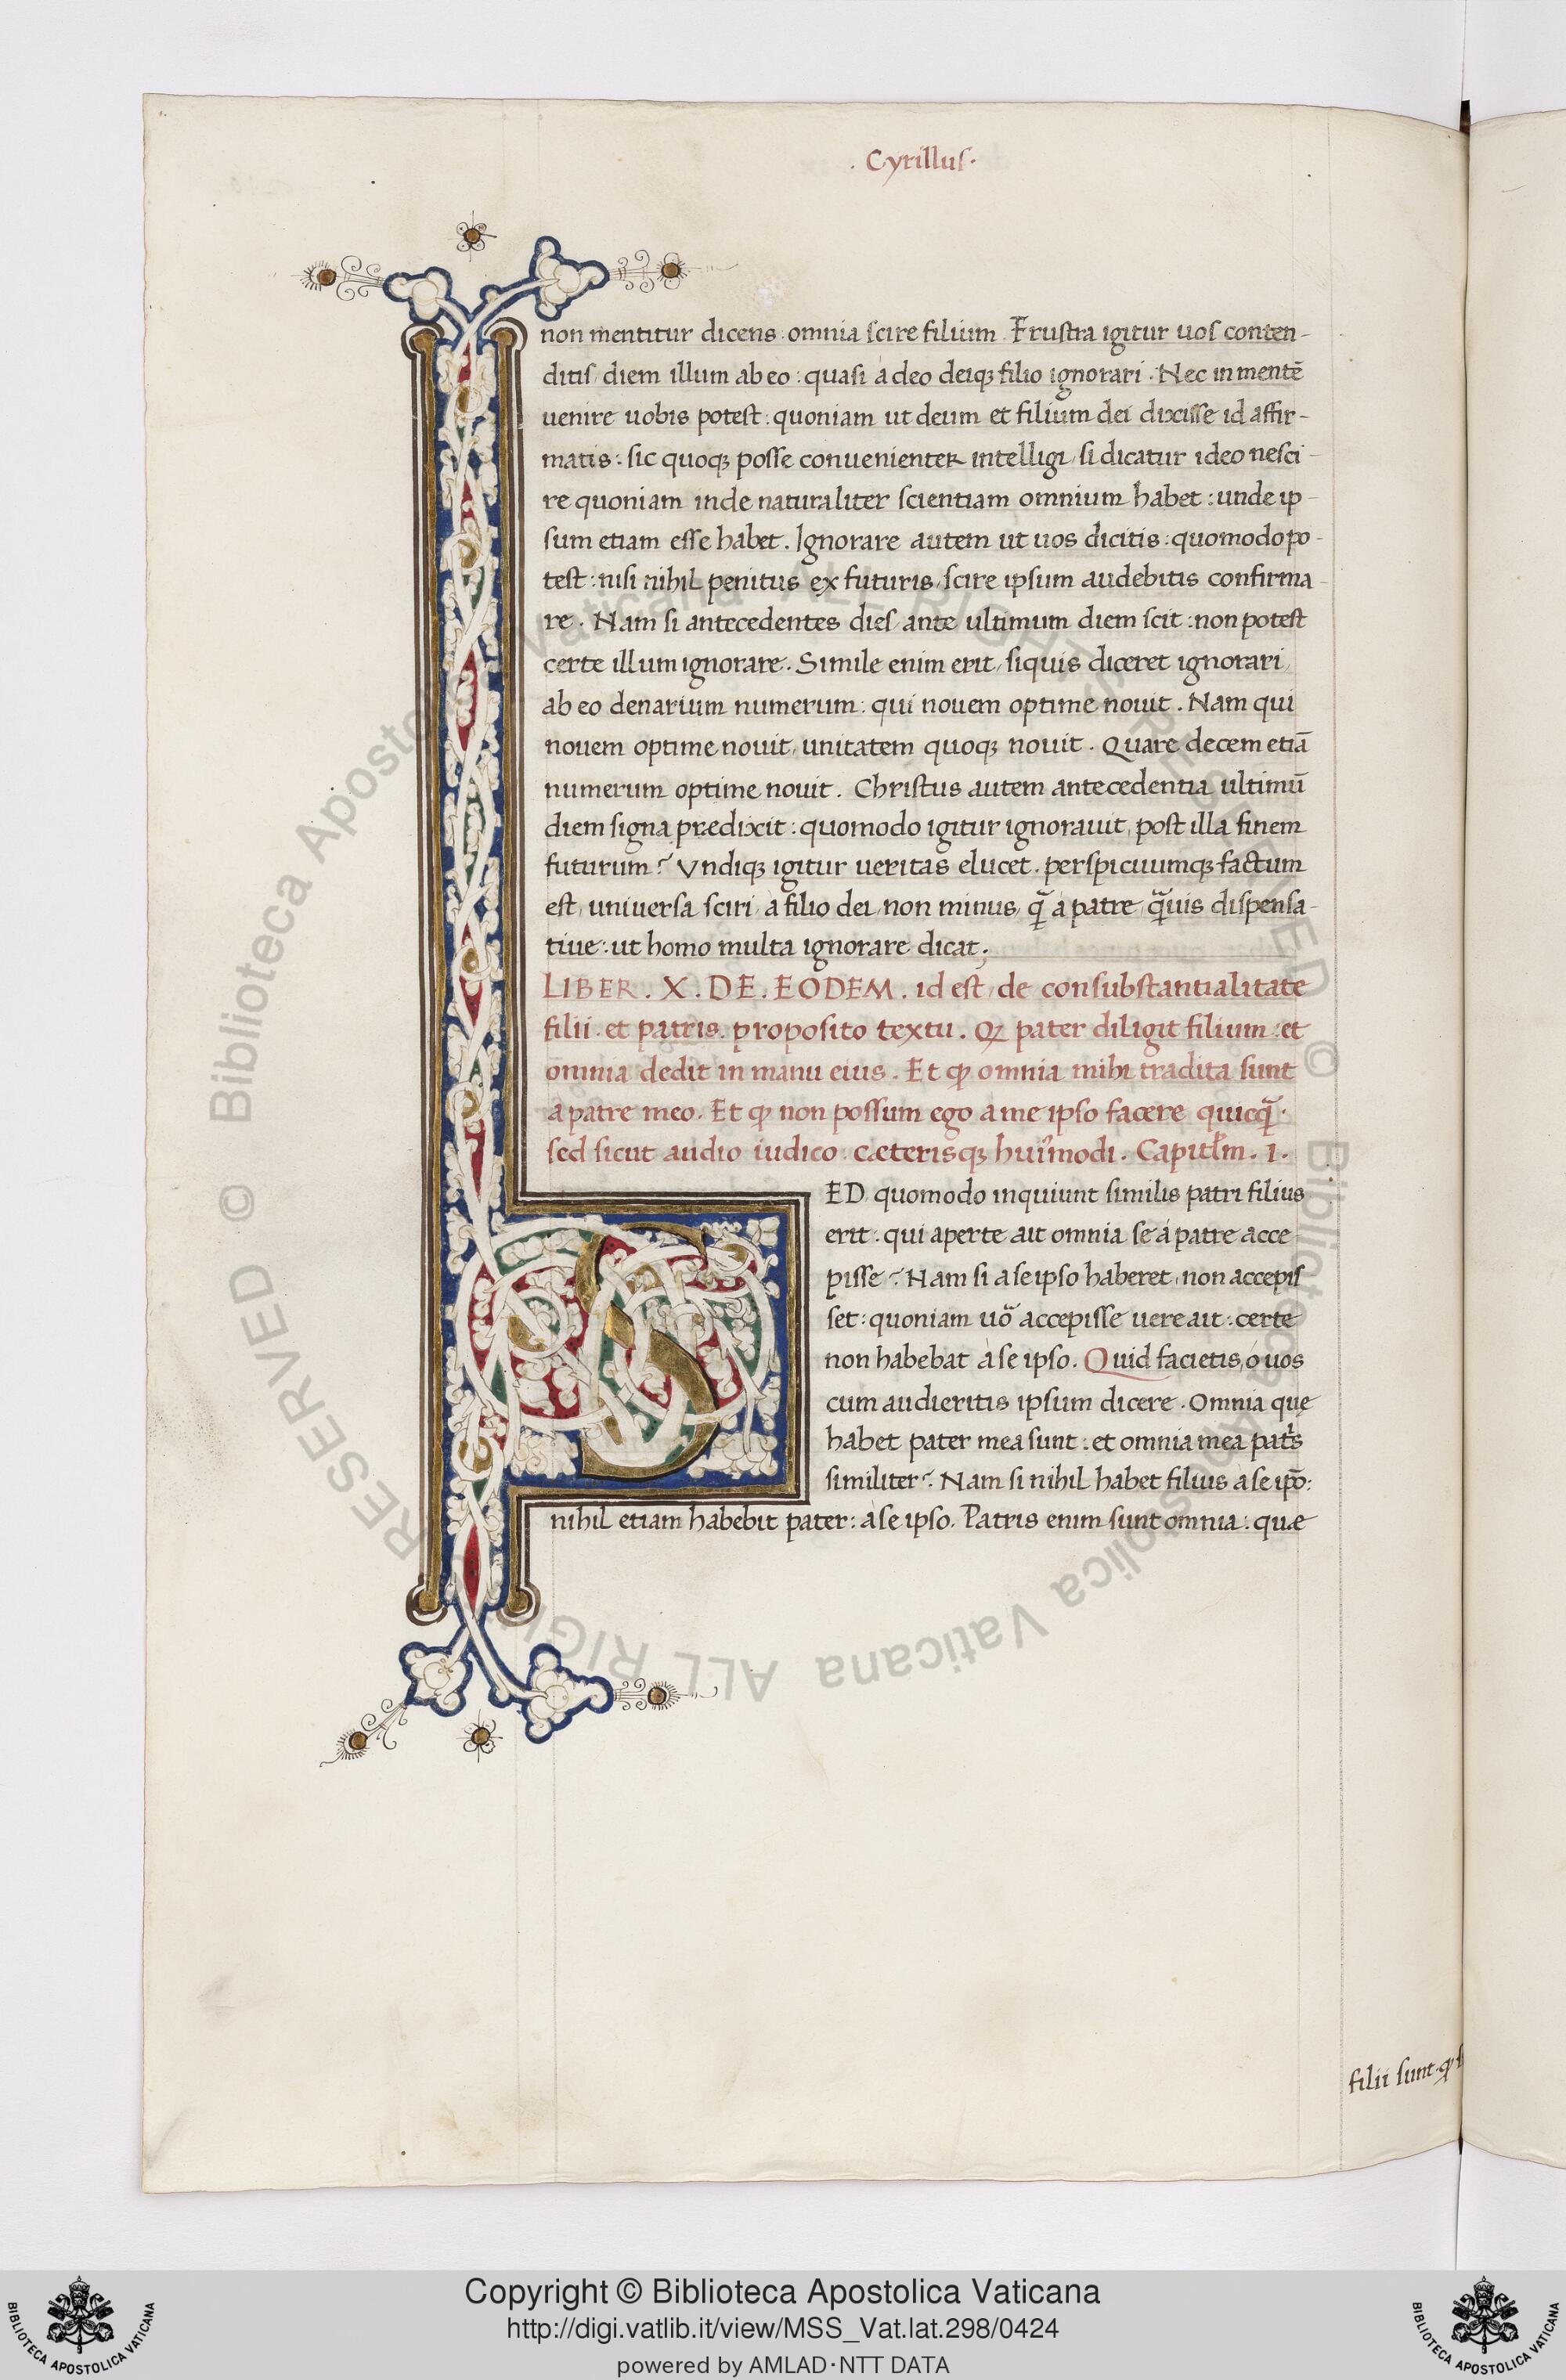 . Cyrillus .
non mentitur dicens : omnia scire filium . Frustra igitur uos conten-
ditis / diem illum ab eo : quasi a deo deiq; filio ignorari . Nec in mentē
uenire uobis potest : quoniam ut deum et filium dei dixisse id affir-
matis : sic quoq; posse conuenienter intelligi / si dicatur ideo nesci-
re quoniam inde naturaliter scientiam omnium habet : unde ip-
sum etiam esse habet . Ignorare autem ut uos dicitis : quomodo po-
test : nisi nihil penitus ex futuris / scire ipsum audebitis confirma-
re . Nam si antecedentes dies / ante ultimum diem scit : non potest
certe illum ignorare . Simile enim erit / siquis diceret ignorari /
ab eo denarium numerum : qui nouem optime nouit . Nam qui
nouem optime nouit / unitatem quoq; nouit . Quare decem etiā
numerum optime nouit . Christus autem antecedentia ultimū
diem signa prædixit : quomodo igitur ignorauit / post illa finem
futurum ? Vndiq; igitur ueritas elucet . perspicuumq; factum
est / uniuersa sciri / a filio dei / non minus / q̄ a patre / q̄uis dispensa-
tiue : ut homo multa ignorare dicat ;
LIBER . X . DE . EODEM . id est / de consubstantialitate
filii . et patris . proposito textu . Q pater diligit filium : et
omnia dedit in manu eius . Et ꝙ omnia mihi tradita sunt
a patre meo . Et ꝙ non possum ego a me ipso facere quicq̄ .
sed sicut audio iudico : cæterisq; hui᾽modi . Capitłm . 1 .
SED quomodo inquiunt similis patri filius
erit . qui aperte ait omnia se a patre acce-
pisse ? Nam si a se ipso haberet / non accepis
set : quoniam uō accepisse uere ait : certe
non habebat a se ipso . Quid facietis / o uos
cum audieritis ipsum dicere . Omnia quę
habet pater mea sunt : et omnia mea patis
similiter ? Nam si nihil habet filius a se ipō :
nihil etiam habebit pater : a se ipso . Patris enim sunt omnia : quæ
filii sunt . ꝙ
© Biblioteca Apostolica Vaticana ALL RIGHTS RESERVED
© Biblioteca Apostolica Vaticana ALL RIGHTS RESERVED
Copyright © Biblioteca Apostolica Vaticana
http://digi.vatlib.it/view/MSS_Vat.lat.298/0424
powered by AMLAD·NTT DATA
BIBLIOTECA APOSTOLICA VATICANA
BIBLIOTECA APOSTOLICA VATICANA